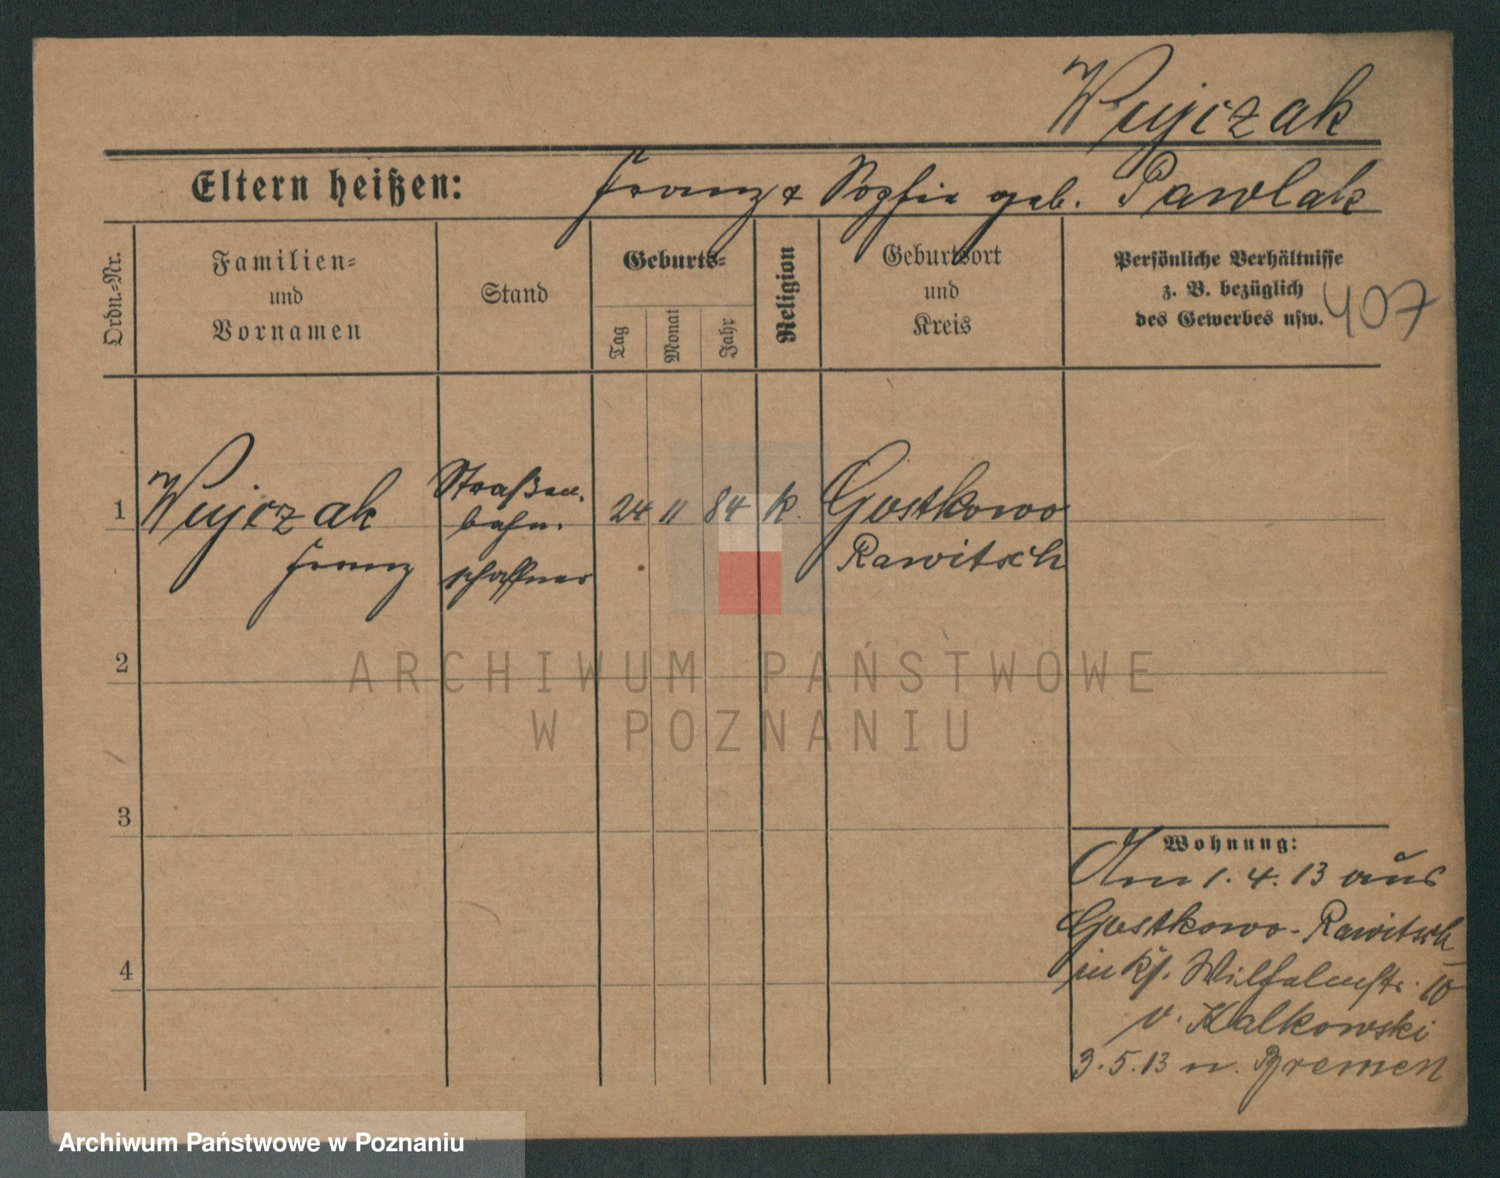 Wujczak
Eltern heißen: Franz & Sophie geb. Pawlak
Ordn.-Nr.
Familien-
und
Vornamen
Stand
Geburts-
Tag
Monat
Jahr
Religion
Geburtsort
und
Kreis
Persönliche Verhältnisse
z. B. bezüglich
des Gewerbes usw.
407
1
Wujczak
Franz
Straßen-
bahn-
schaffner
24 11 84 K.
Gostkowo
Rawitsch
2
3
4
Wohnung:
Am 1.4.13 aus
Gostkowo-Rawitsch
in Wilhelmstr. 10
v. Kalkowski
3.5.13 n. Bremen
ARCHIWUM PAŃSTWOWE
W POZNANIU
Archiwum Państwowe w Poznaniu